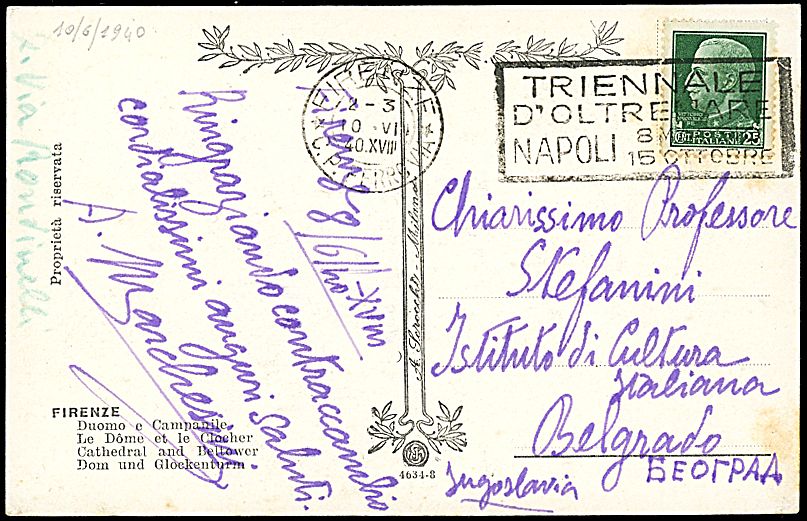 10/6/1940
FIRENZE
2-3
10 VI
40.XVIII
C.P. FERROVIA
TRIENNALE
D'OLTREMARE
8 M
NAPOLI 15 OTTOBRE
CENT. POSTE 25
ITALIANE
Firenze 9/6/40-XVIII
Ringraziando contraccambio
cordialissimi auguri saluti.
A. Marchesini
Chiarissimo Professore
Stefanini
Istituto di Cultura
Italiana
Belgrado
БЕОГРАД
Jugoslavia
Via Rondinelli
Proprietà riservata
FIRENZE
Duomo e Campanile
Le Dôme et le Clocher
Cathedral and Beltower
Dom und Glockenturm
4634-8